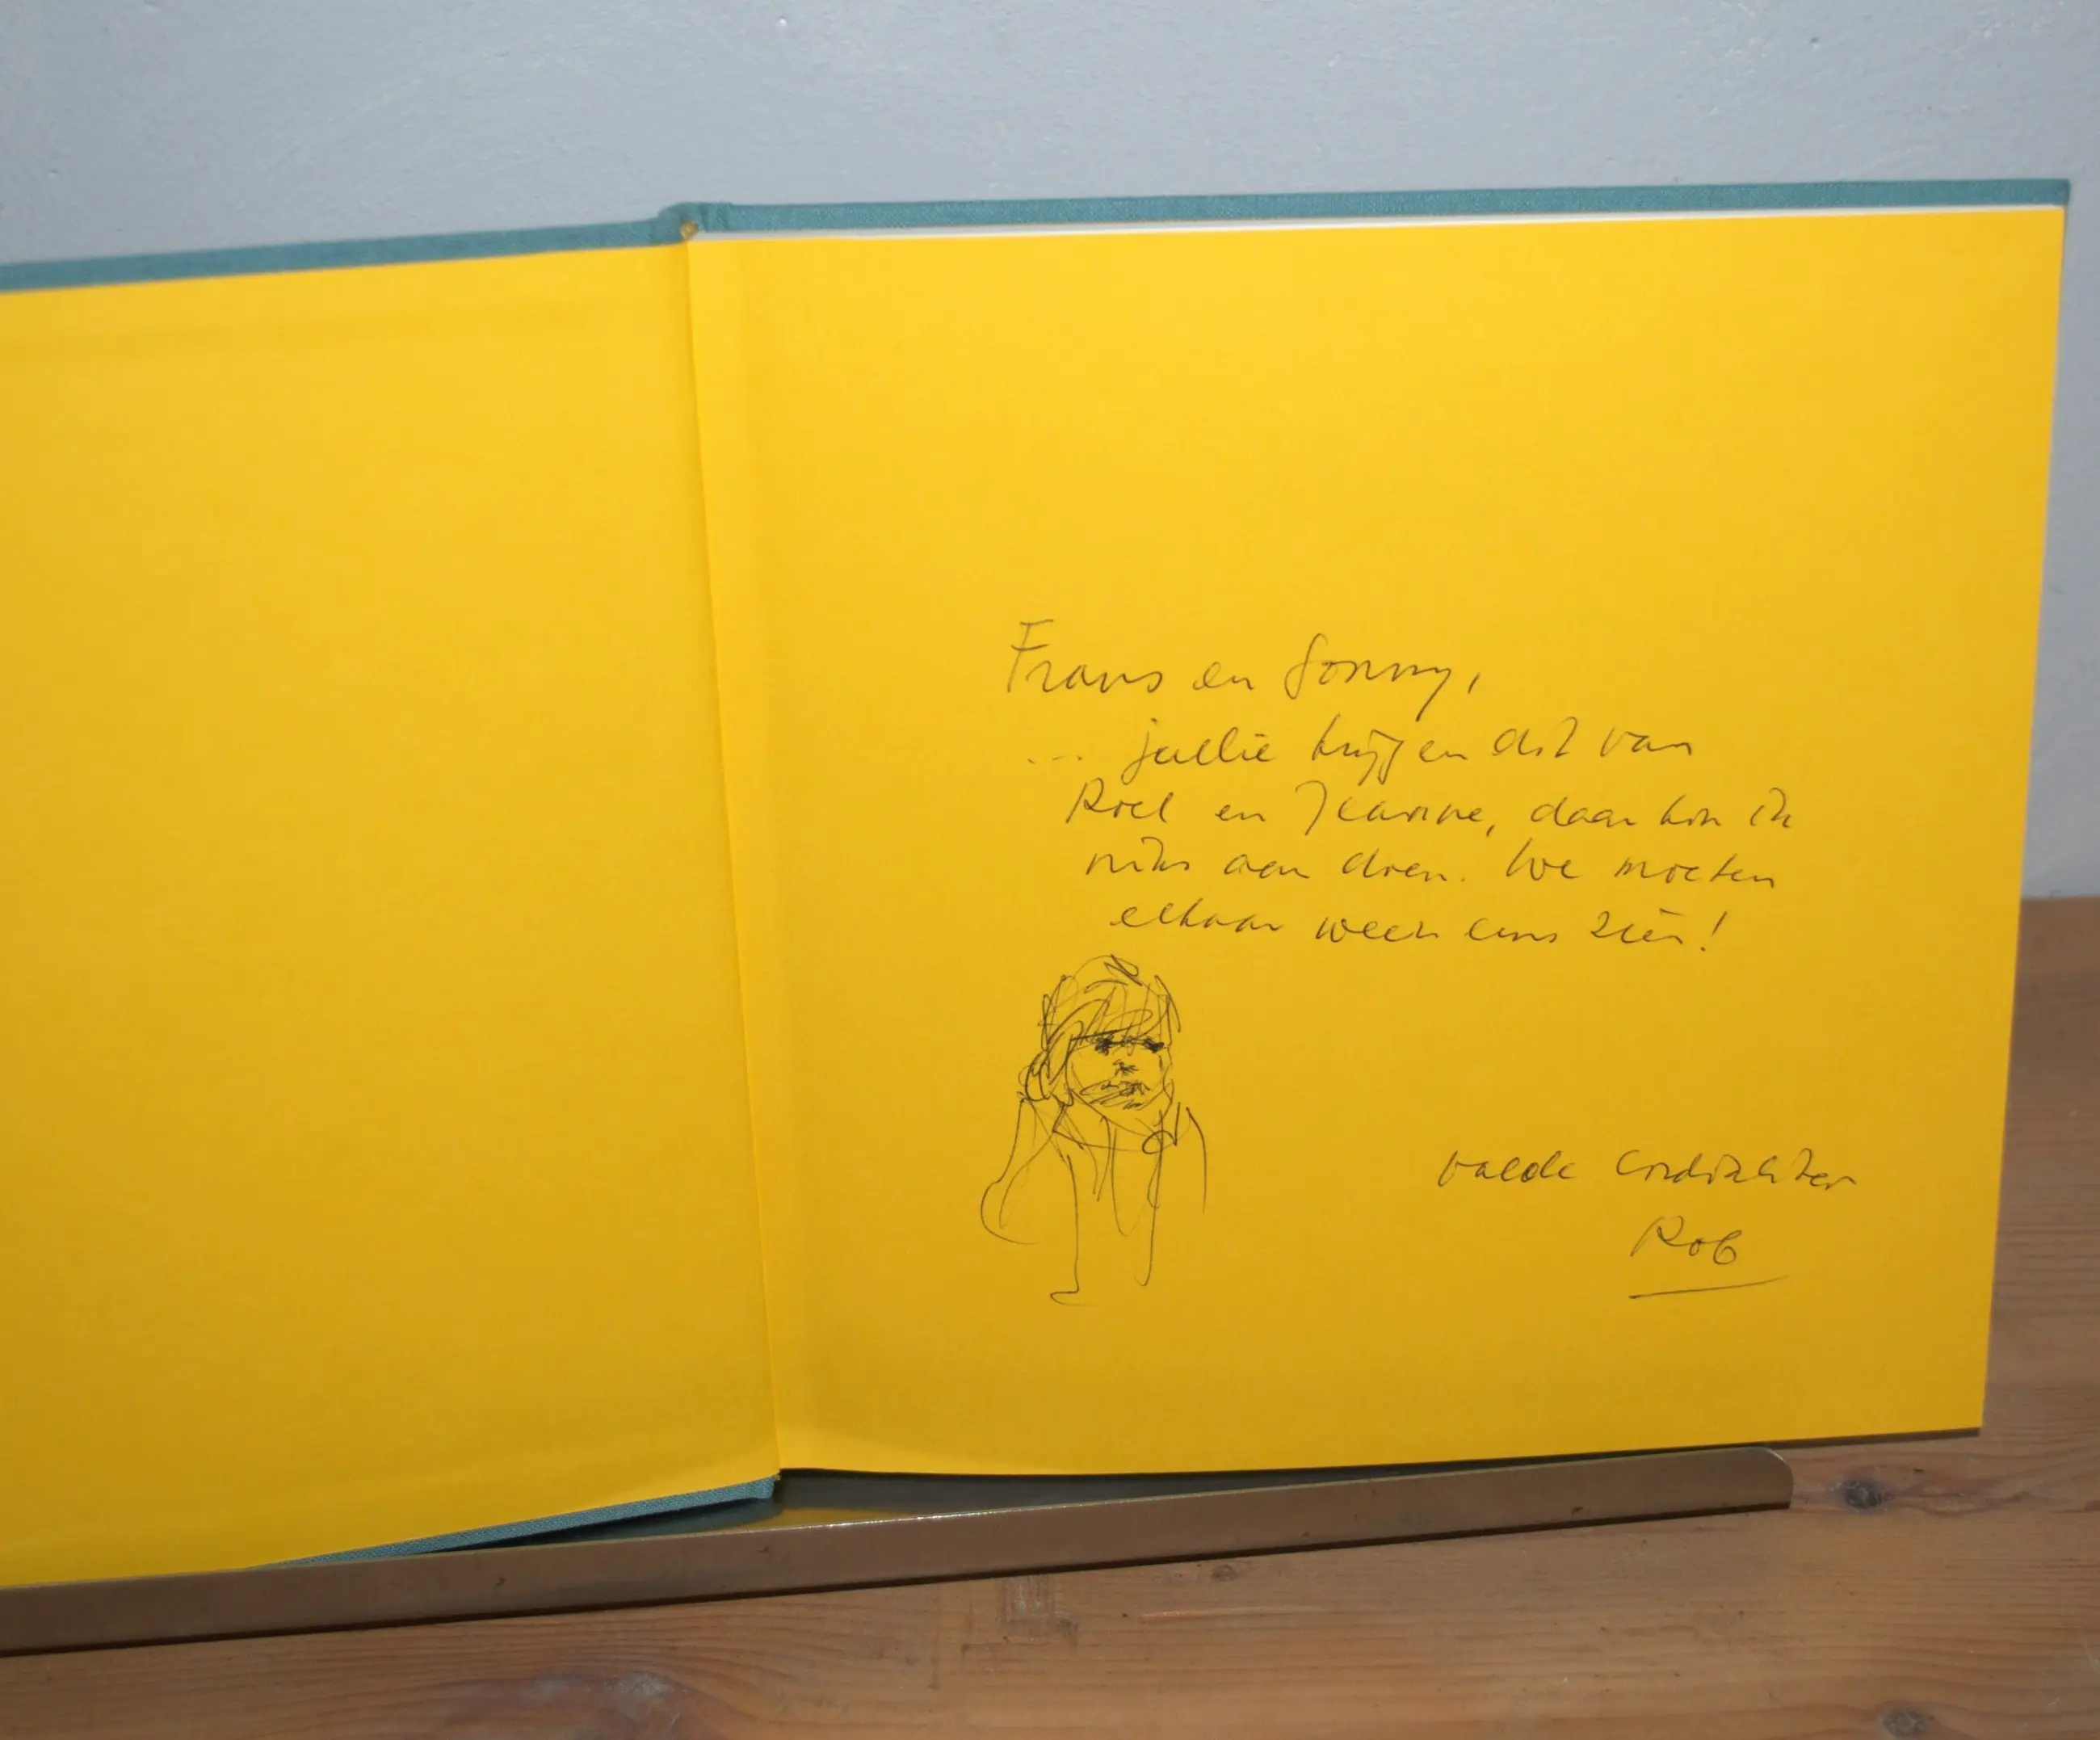 Frans en Sonny,
... jullie krijgen dit van
Roel en Jeanine, daar kon ik
niks aan doen. We moeten
elkaar weer eens zien!
valde cordialiter
Rob